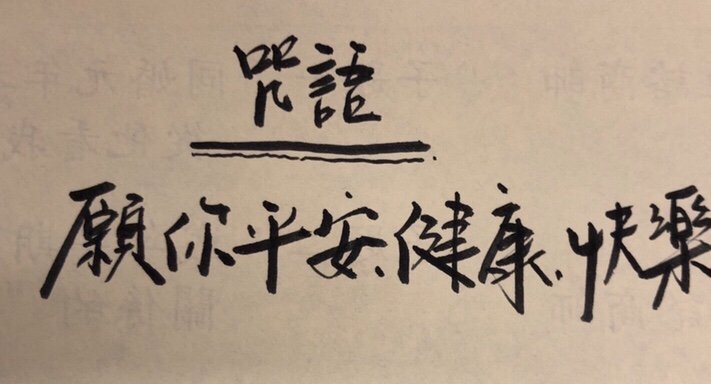 咒語
願你平安、健康、快樂